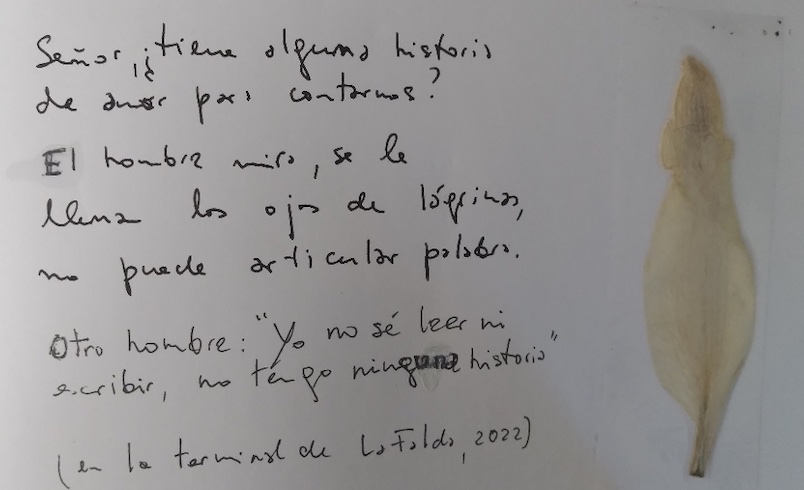 Señor, ¿tiene alguna historia
de amor para contarnos?
El hombre mira, se le
llena los ojos de lágrimas,
no puede articular palabra.
Otro hombre: "Yo no sé leer ni
escribir, no tengo ninguna historia"
(en la terminal de La Falda, 2022)